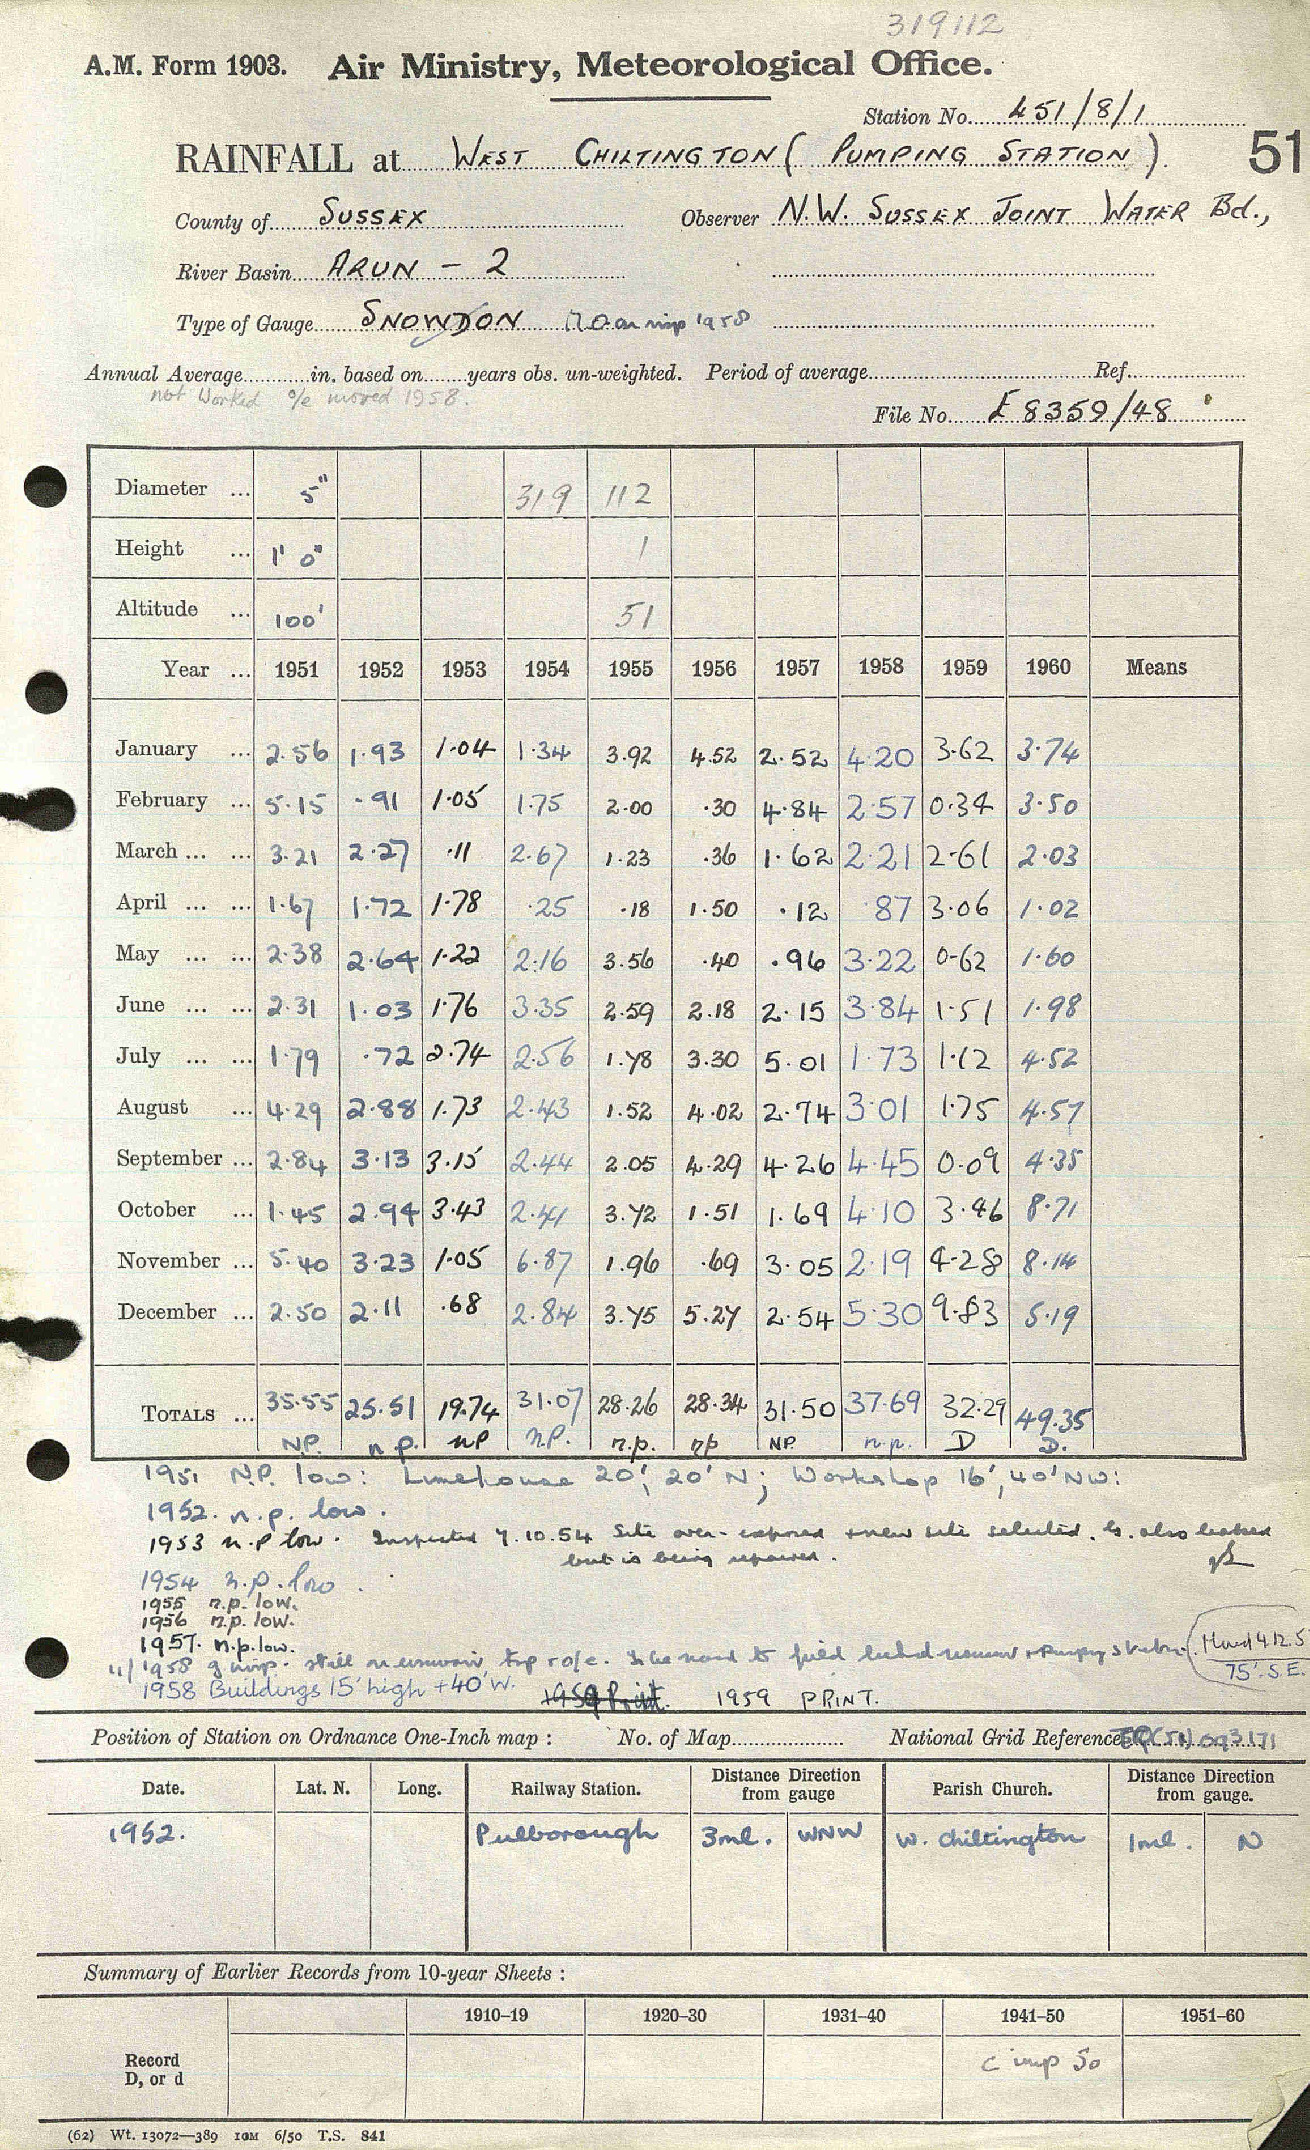 319112
A.M. Form 1903. Air Ministry, Meteorological Office.
Station No. 451/8/1
RAINFALL at WEST CHILTINGTON (PUMPING STATION). 51
County of SUSSEX Observer N.W. SUSSEX JOINT WATER Bd.,
River Basin ARUN - 2
Type of Gauge SNOWDON 1958
Annual Average in. based on years obs. un-weighted. Period of average Ref.
not Worked o/e moved 1958.
File No. E 8359/48
Diameter ... 5" 319 112
Height ... 1' 0" 1
Altitude ... 100' 51
Year ... 1951 1952 1953 1954 1955 1956 1957 1958 1959 1960 Means
January ... 2.56 1.93 1.04 1.34 3.92 4.52 2.52 4.20 3.62 3.74
February ... 5.15 .91 1.05 1.75 2.00 .30 4.84 2.57 0.34 3.50
March ... ... 3.21 2.27 .11 2.67 1.23 .36 1.62 2.21 2.61 2.03
April ... ... 1.67 1.72 1.78 .25 .18 1.50 .12 .87 3.06 1.02
May ... ... 2.38 2.64 1.22 2.16 3.56 .40 .96 3.22 0.62 1.60
June ... ... 2.31 1.03 1.76 3.35 2.59 2.18 2.15 3.84 1.51 1.98
July ... ... 1.79 .72 2.74 2.56 1.78 3.30 5.01 1.73 1.12 4.52
August ... 4.29 2.88 1.73 2.43 1.52 4.02 2.74 3.01 1.75 4.57
September ... 2.84 3.13 3.15 2.44 2.05 4.29 4.26 4.45 0.09 4.35
October ... 1.45 2.94 3.43 2.41 3.72 1.51 1.69 4.10 3.46 8.71
November ... 5.40 3.23 1.05 6.87 1.96 .69 3.05 2.19 4.28 8.14
December ... 2.50 2.11 .68 2.84 3.75 5.27 2.54 5.30 9.83 5.19
TOTALS ... 35.55 25.51 19.74 31.07 28.26 28.34 31.50 37.69 32.29 49.35
N.P. n.p. nP n.P. n.p. np NP. n.p. D D.
1951 N.P. low: Limehouse 20', 20' N; Workshop 16', 40' NW:
1952. n.p. low.
1953 n.p low. Inspected 7.10.54 Site over-exposed + new site selected. G. also leaked
but is being repaired.
1954 n.p. low.
1955 n.p. low.
1956 n.p. low.
1957. n.p. low.
11/1958 g insp. still on reservoir top To be moved to field behind reservoir + Pumping Station. (Moved 4.12.5
75' S.E.
1958 Buildings 15' high + 40' W. 1959 Print. 1959 PRINT.
Position of Station on Ordnance One-Inch map : No. of Map National Grid Reference TQ(51) 093171
Date. Lat. N. Long. Railway Station. Distance from Direction gauge Parish Church. Distance from Direction gauge.
1952. Pulborough 3ml. WNW W. Chiltington 1ml. N
Summary of Earlier Records from 10-year Sheets :
1910–19 1920–30 1931–40 1941–50 1951–60
Record
D, or d
c imp 50
(62) Wt. 13072—389 10M 6/50 T.S. 841